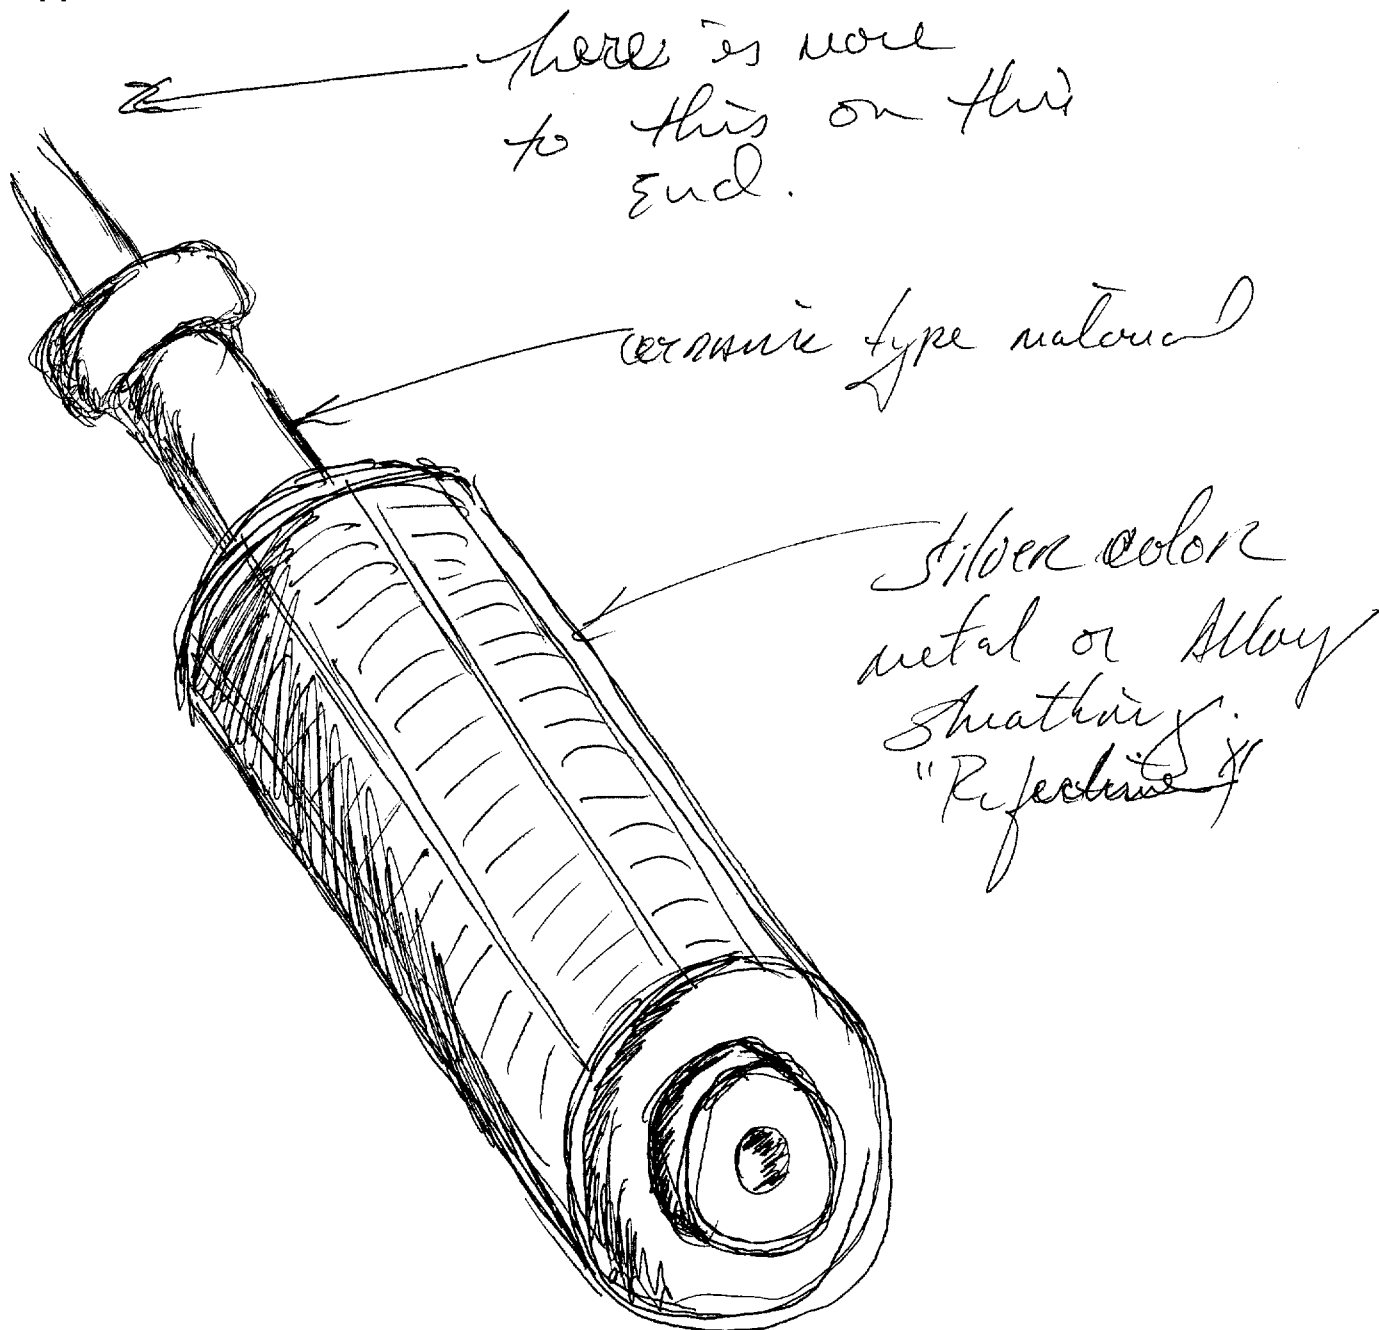 there is more
to this on this
End.
ceramic type material
Silver color
metal or Alloy
sheathing.
"Reflective"